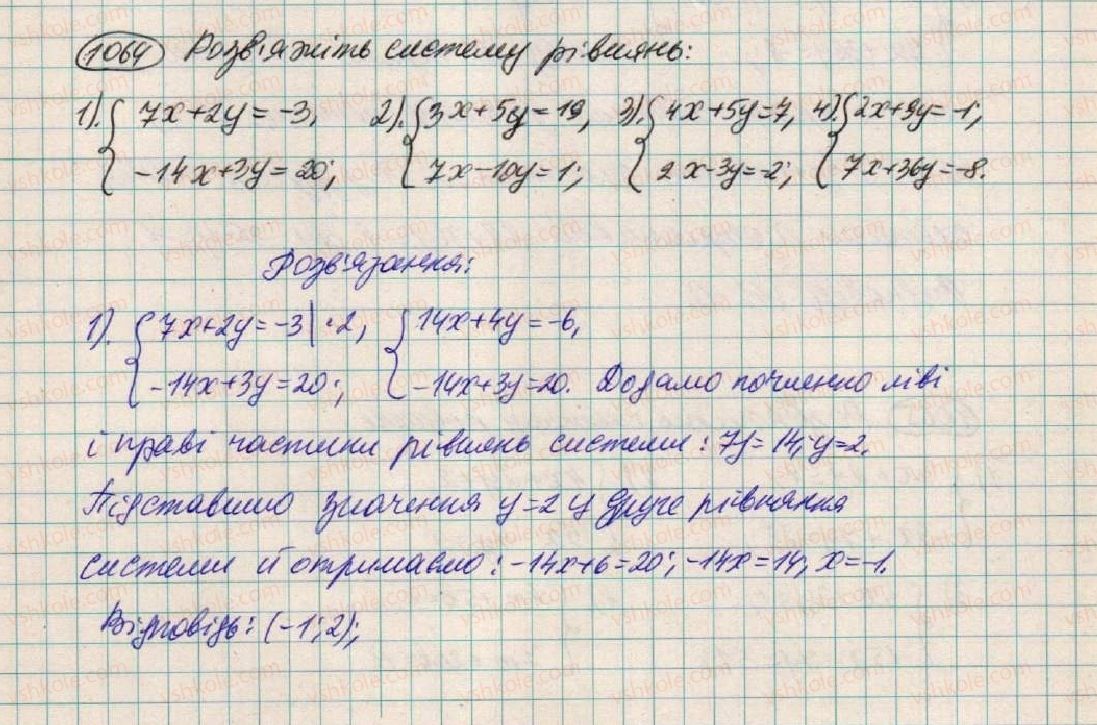 1064 Розв'яжіть систему рівнянь:
1). { 7x+2y=-3, 2). { 3x+5y=19, 3). { 4x+5y=7, 4). { 2x+9y=-1,
-14x+3y=20; 7x-10y=1; 2x-3y=-2; 7x+36y=-8.
Розв'язання:
1). { 7x+2y=-3|·2, { 14x+4y=-6,
-14x+3y=20; -14x+3y=20. Додамо почленно ліві
і праві частини рівнянь системи: 7y=14; y=2.
Підставимо значення y=2 у друге рівняння
системи й отримаємо: -14x+6=20; -14x=14, x=-1.
Відповідь: (-1;2);
vshkole.com